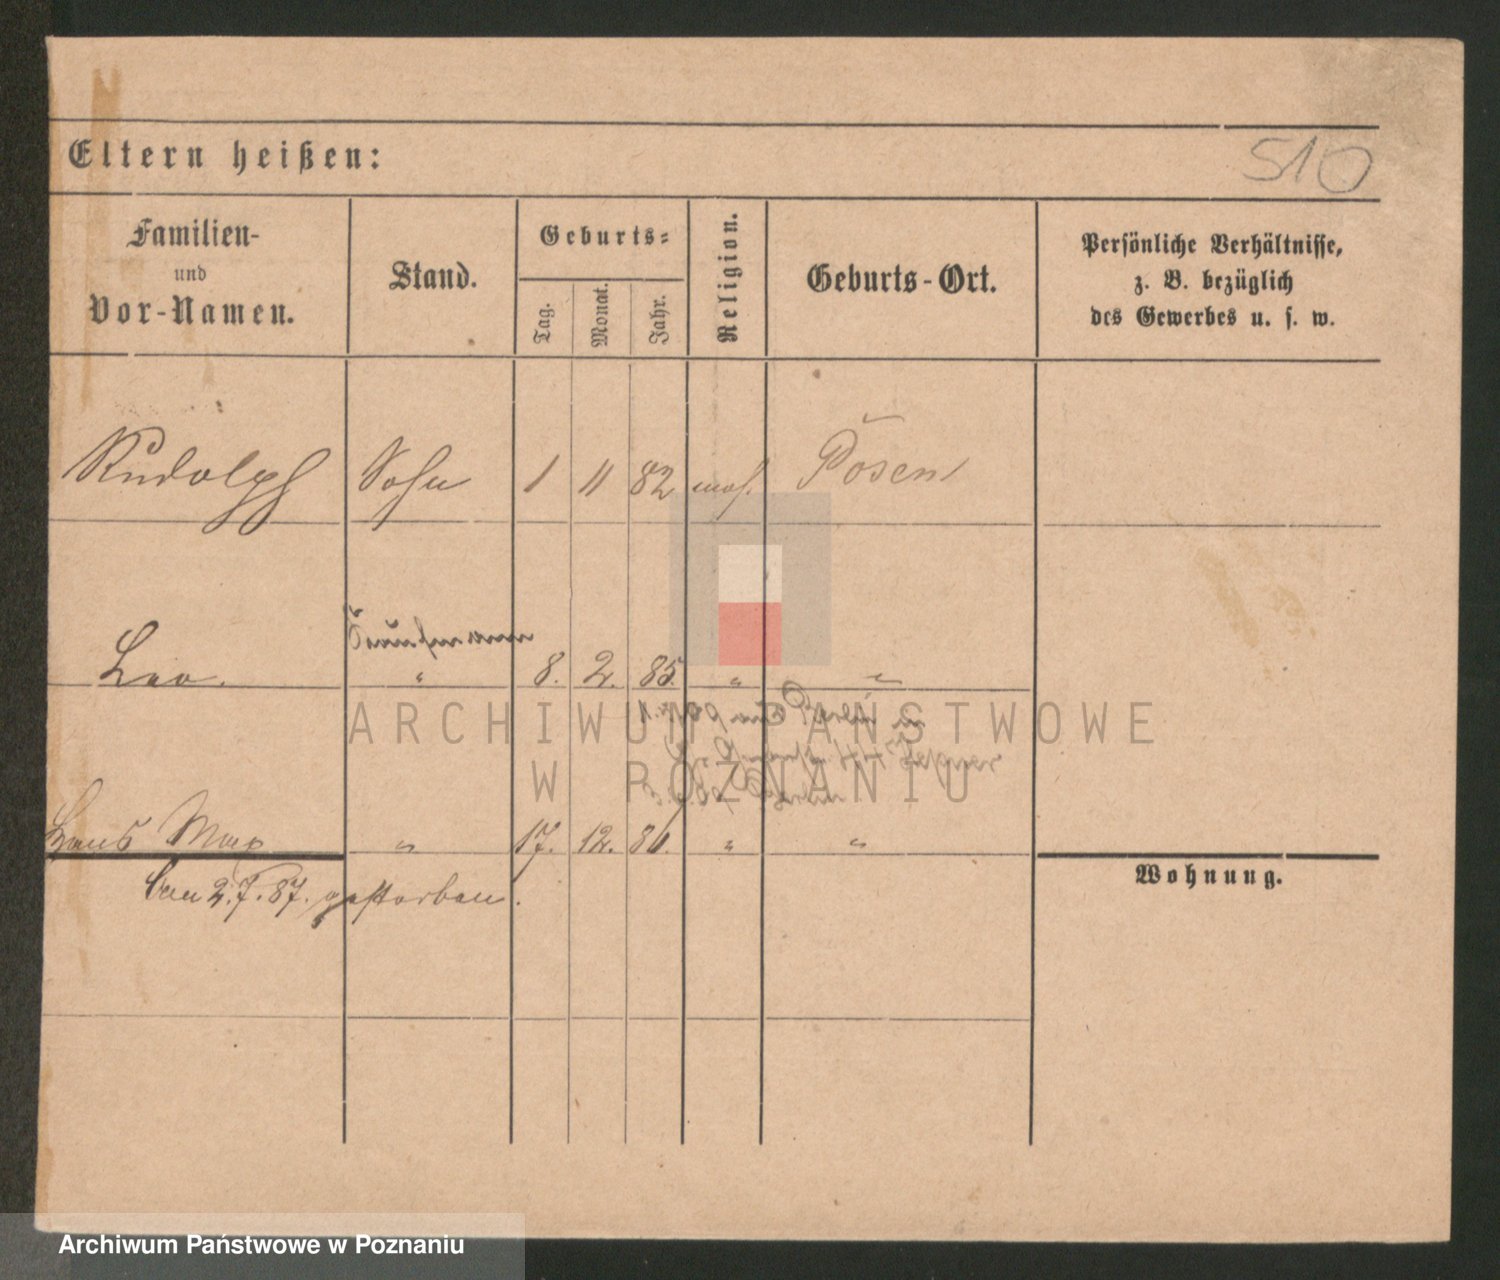 510
Eltern heißen:
Familien-
und
Vor-Namen.
Stand.
Geburts-
Tag.
Monat.
Jahr.
Religion.
Geburts-Ort.
Persönliche Verhältnisse,
z. B. bezüglich
des Gewerbes u. s. w.
Rudolph Sohn 1 11 82 mos. Posen
Leo. " 8. 2. 85. " "
Hans Max " 17. 12. 86. " "
2.7.87. gestorben.
Wohnung.
ARCHIWUM PAŃSTWOWE
W POZNANIU
Archiwum Państwowe w Poznaniu